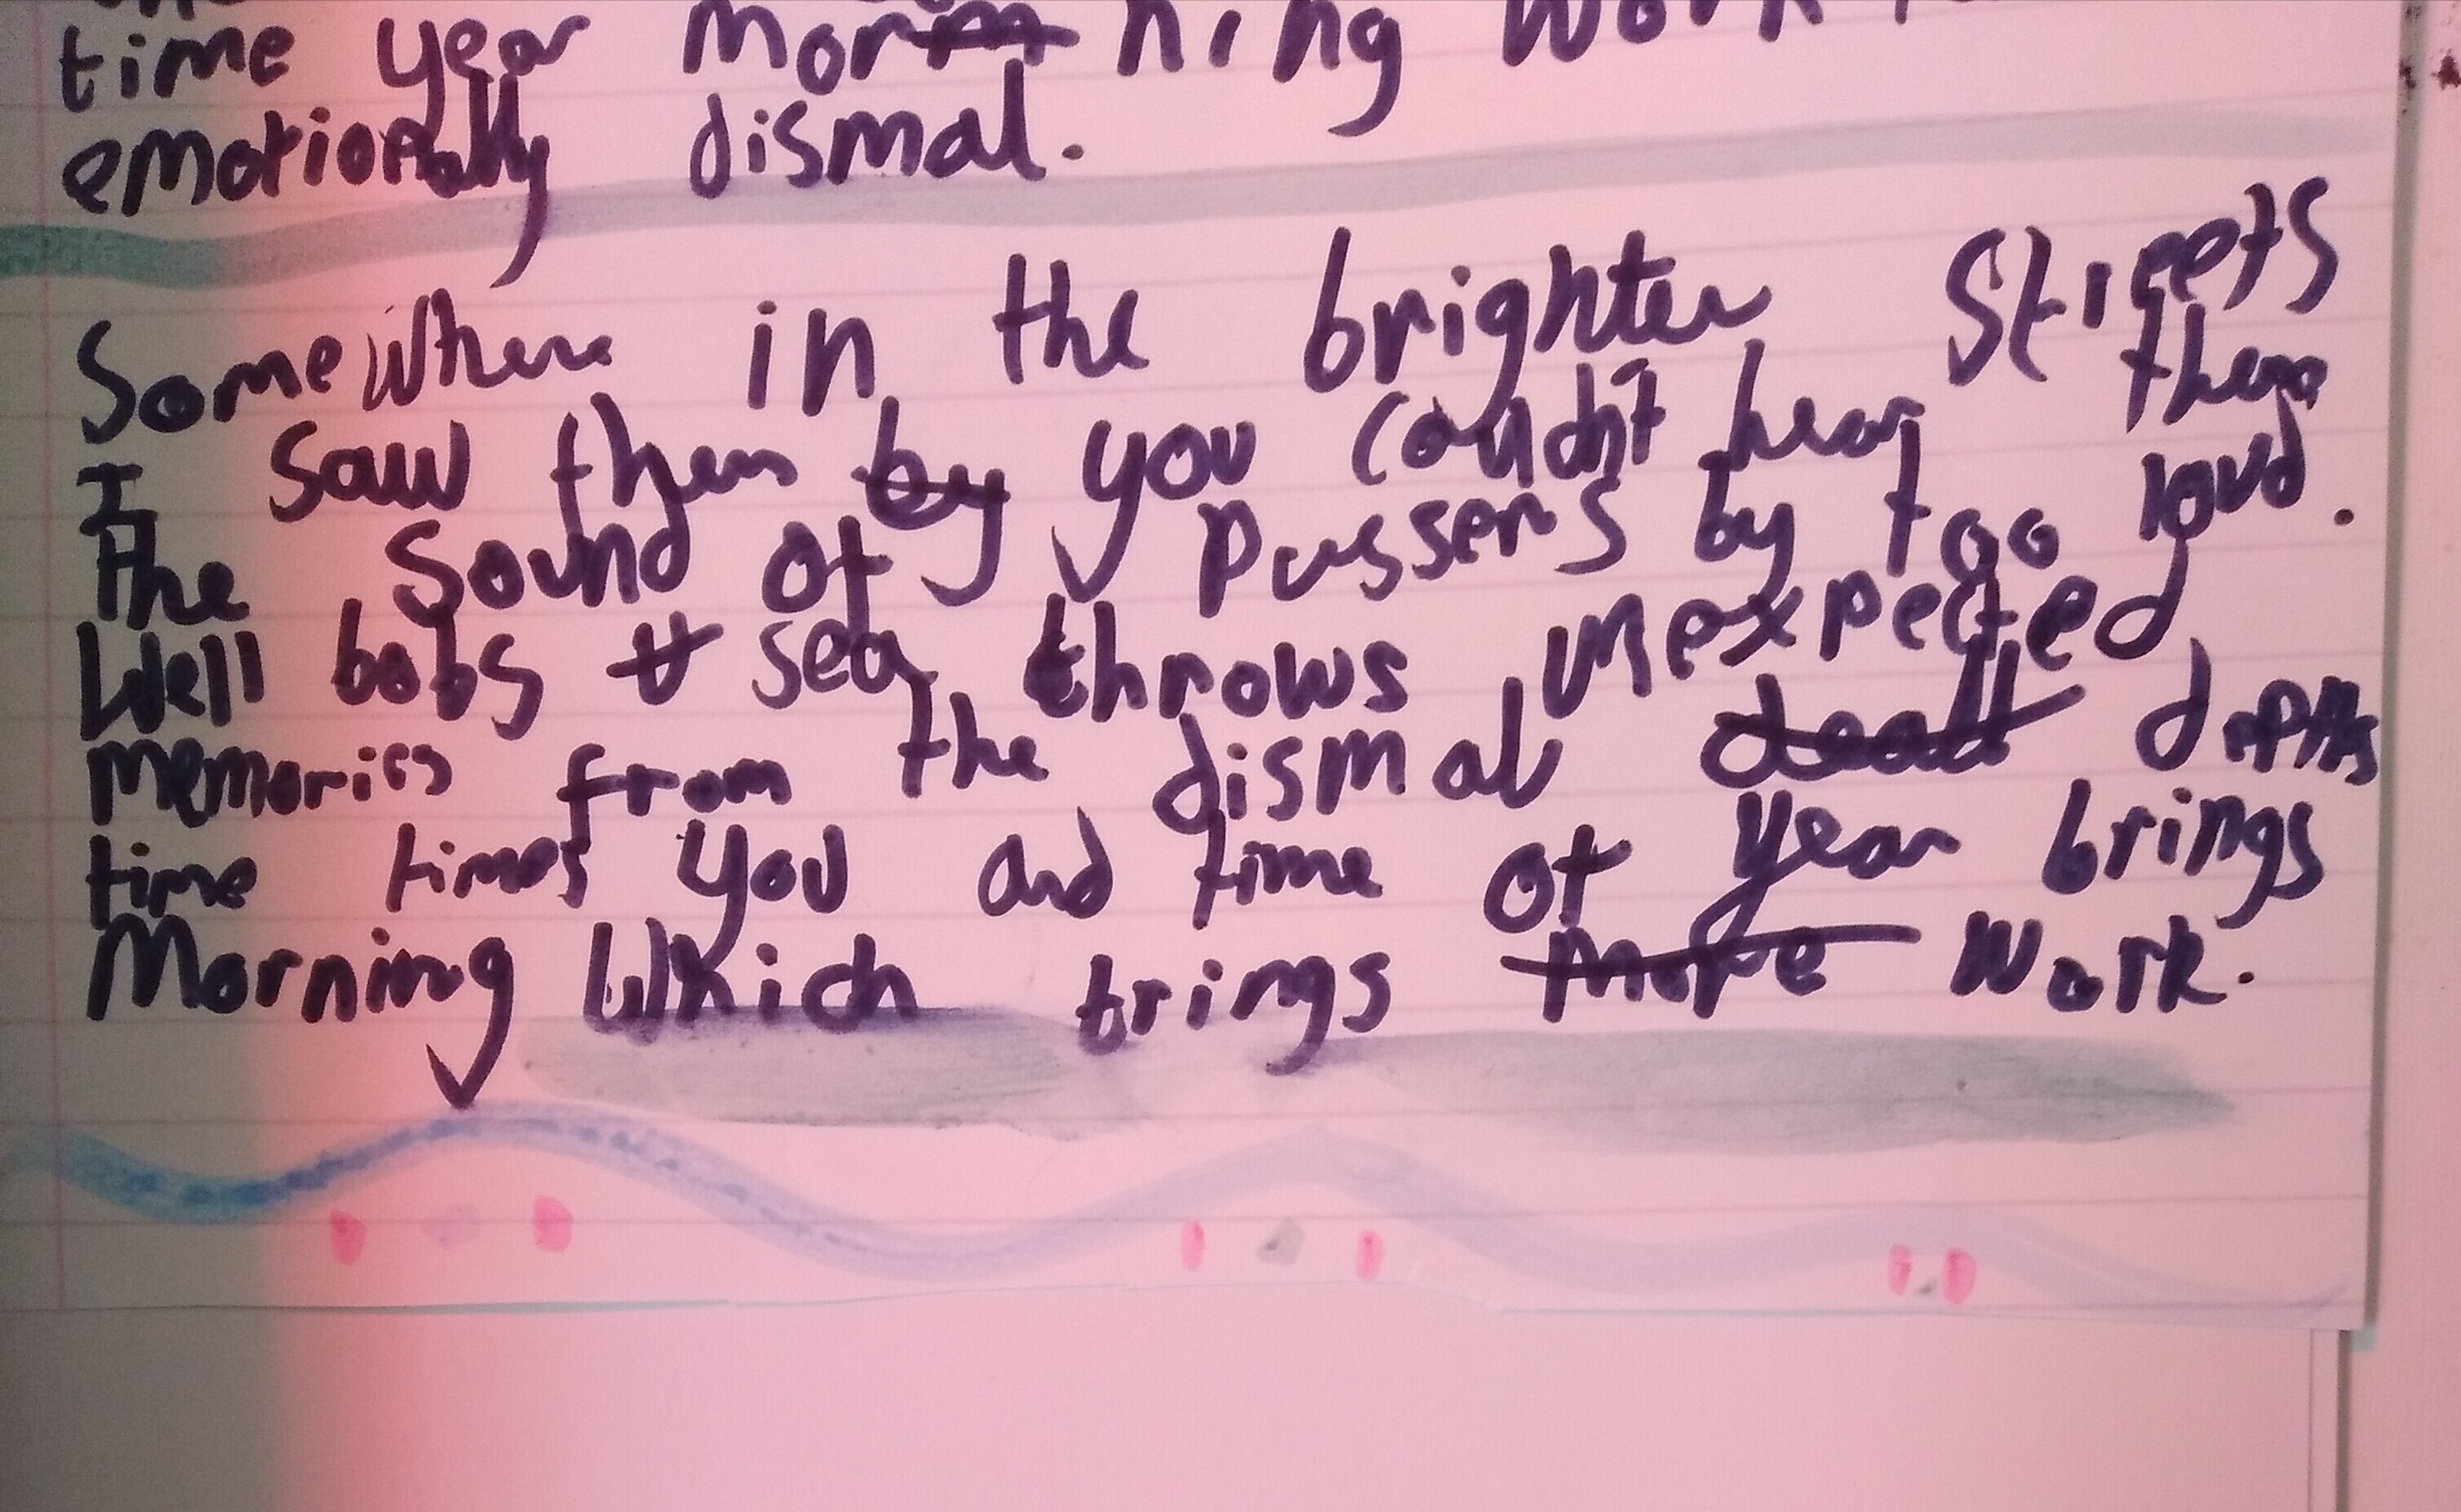 time year mor ning work
emotionally dismal.
Somewhere in the brighter streets
I saw them by you couldnt hear them
The Sound of passers by too loud.
Well bobs & sea throws unexpected
memories from the dismal depths
time times you and time of year brings
Morning which brings more work.